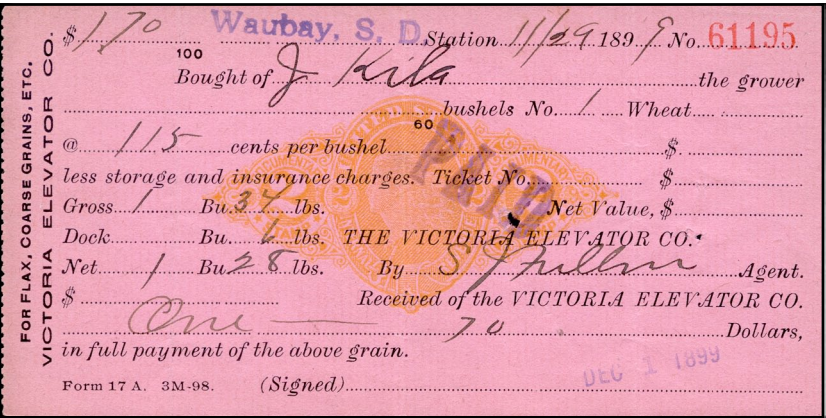 FOR FLAX, COARSE GRAINS, ETC.
VICTORIA ELEVATOR CO.
$ 1 70/100 Waubay, S. D. Station 11/29 1899 No. 61195
Bought of J Kila the grower
bushels No. 1 Wheat
60
@ 115 cents per bushel $
less storage and insurance charges. Ticket No. $
PAID
Gross 1 Bu. 34 lbs. Net Value, $
Dock Bu. 6 lbs. THE VICTORIA ELEVATOR CO.
Net 1 Bu 28 lbs. By Agent.
$ Received of the VICTORIA ELEVATOR CO.
One 70 Dollars,
in full payment of the above grain.
DEC 1 1899
Form 17 A. 3M-98. (Signed)